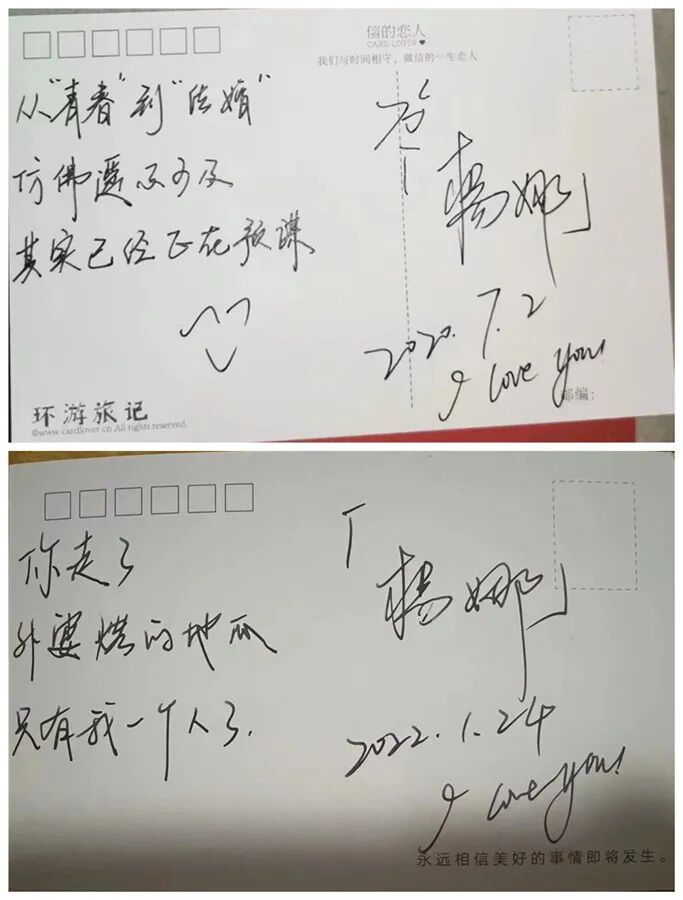 信的恋人
CARD LOVER
我们与时间相守，做信的一生恋人
从“青春”到“结婚”
仿佛遥不可及
其实已经正在预谋
「杨娜」
2020.7.2
I love you!
环游旅记
©www.cardlover.cn All rights reserved.
邮编：
你走了
外婆烘的地瓜
只有我一个人了.
「杨娜」
2022.1.24
I love you!
永远相信美好的事情即将发生。